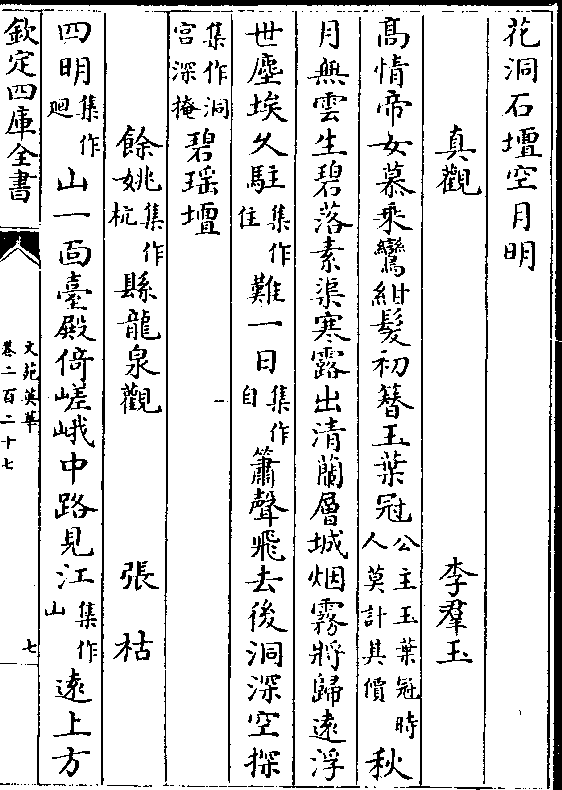 花洞石壇空月明
真觀 李羣玉
髙情帝女慕乘鸞紺髮初簪玉葉冠公主玉葉冠時人莫計其價秋
月無雲生碧落素渠寒露出清蘭層城烟霧將歸逺浮
世塵埃乆駐集作住難一日集作自簫聲飛去後洞深空探
集作洞宫深掩碧瑶壇
餘姚集作杭縣龍泉觀 張枯
四明集作廻山一面臺殿倚嵯峨中路見江集作山逺上方
欽定四庫全書
文苑英華
卷二百二十七
七